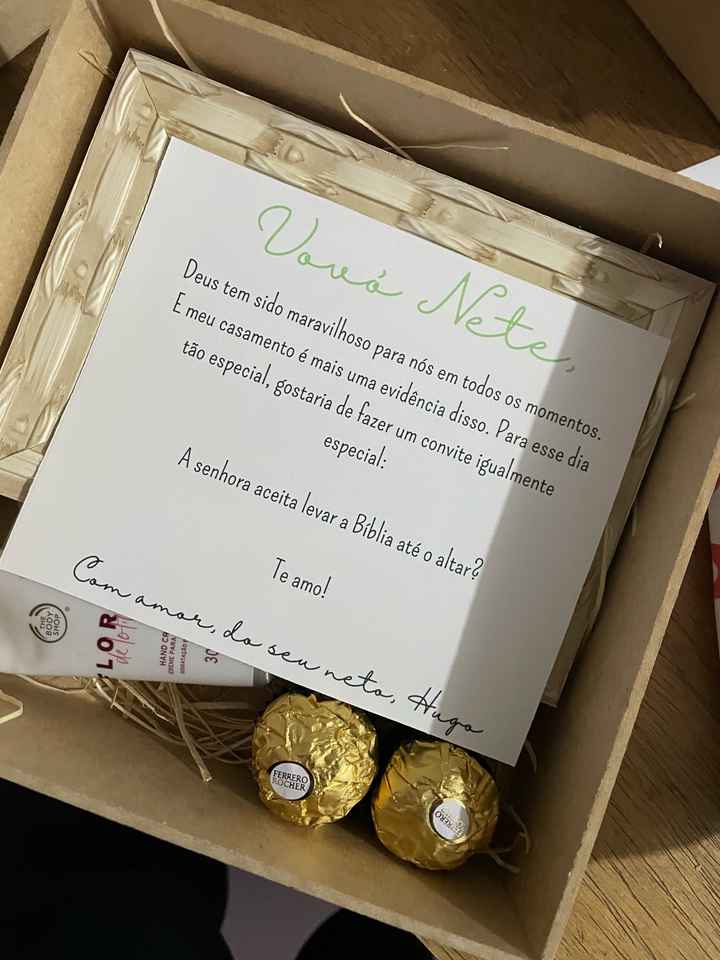 Vovó Nete,
Deus tem sido maravilhoso para nós em todos os momentos.
E meu casamento é mais uma evidência disso. Para esse dia
tão especial, gostaria de fazer um convite igualmente
especial:
A senhora aceita levar a Bíblia até o altar?
Te amo!
Com amor, do seu neto, Hugo
THE
BODY
SHOP
FLOR
de lótus
HAND CR
CREME PARA
30
FERRERO
ROCHER
FERRERO